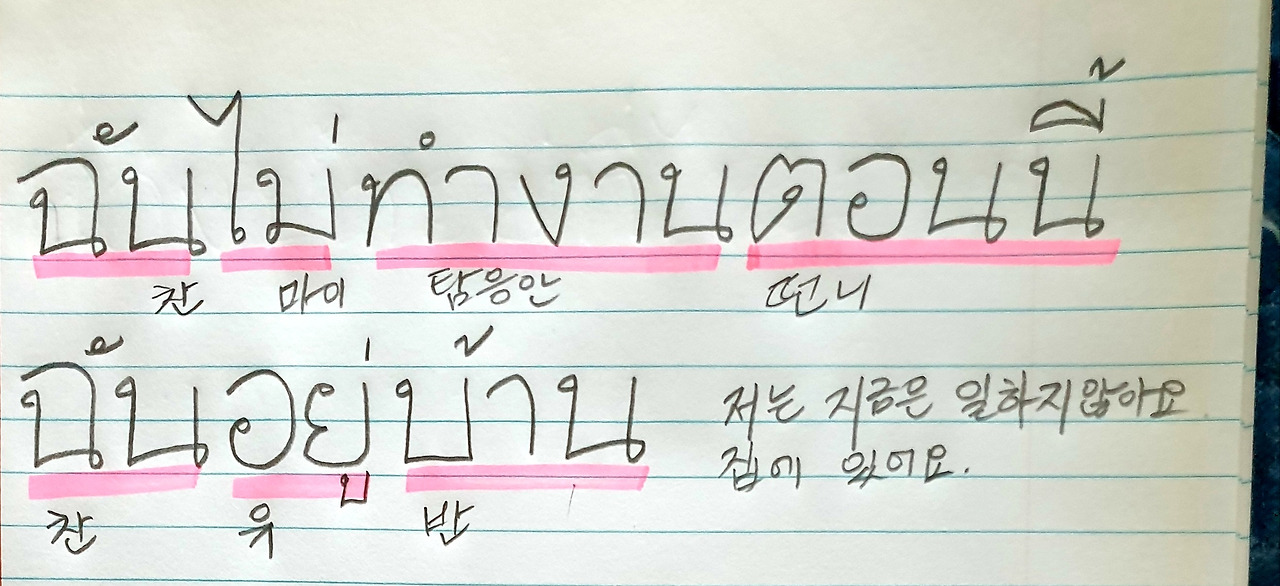 ฉันไม่ทำงานตอนนี้
찬 마이 탐응안 떤니
ฉันอยู่บ้าน
저는 지금은 일하지않아요
집에 있어요.
찬 유 반